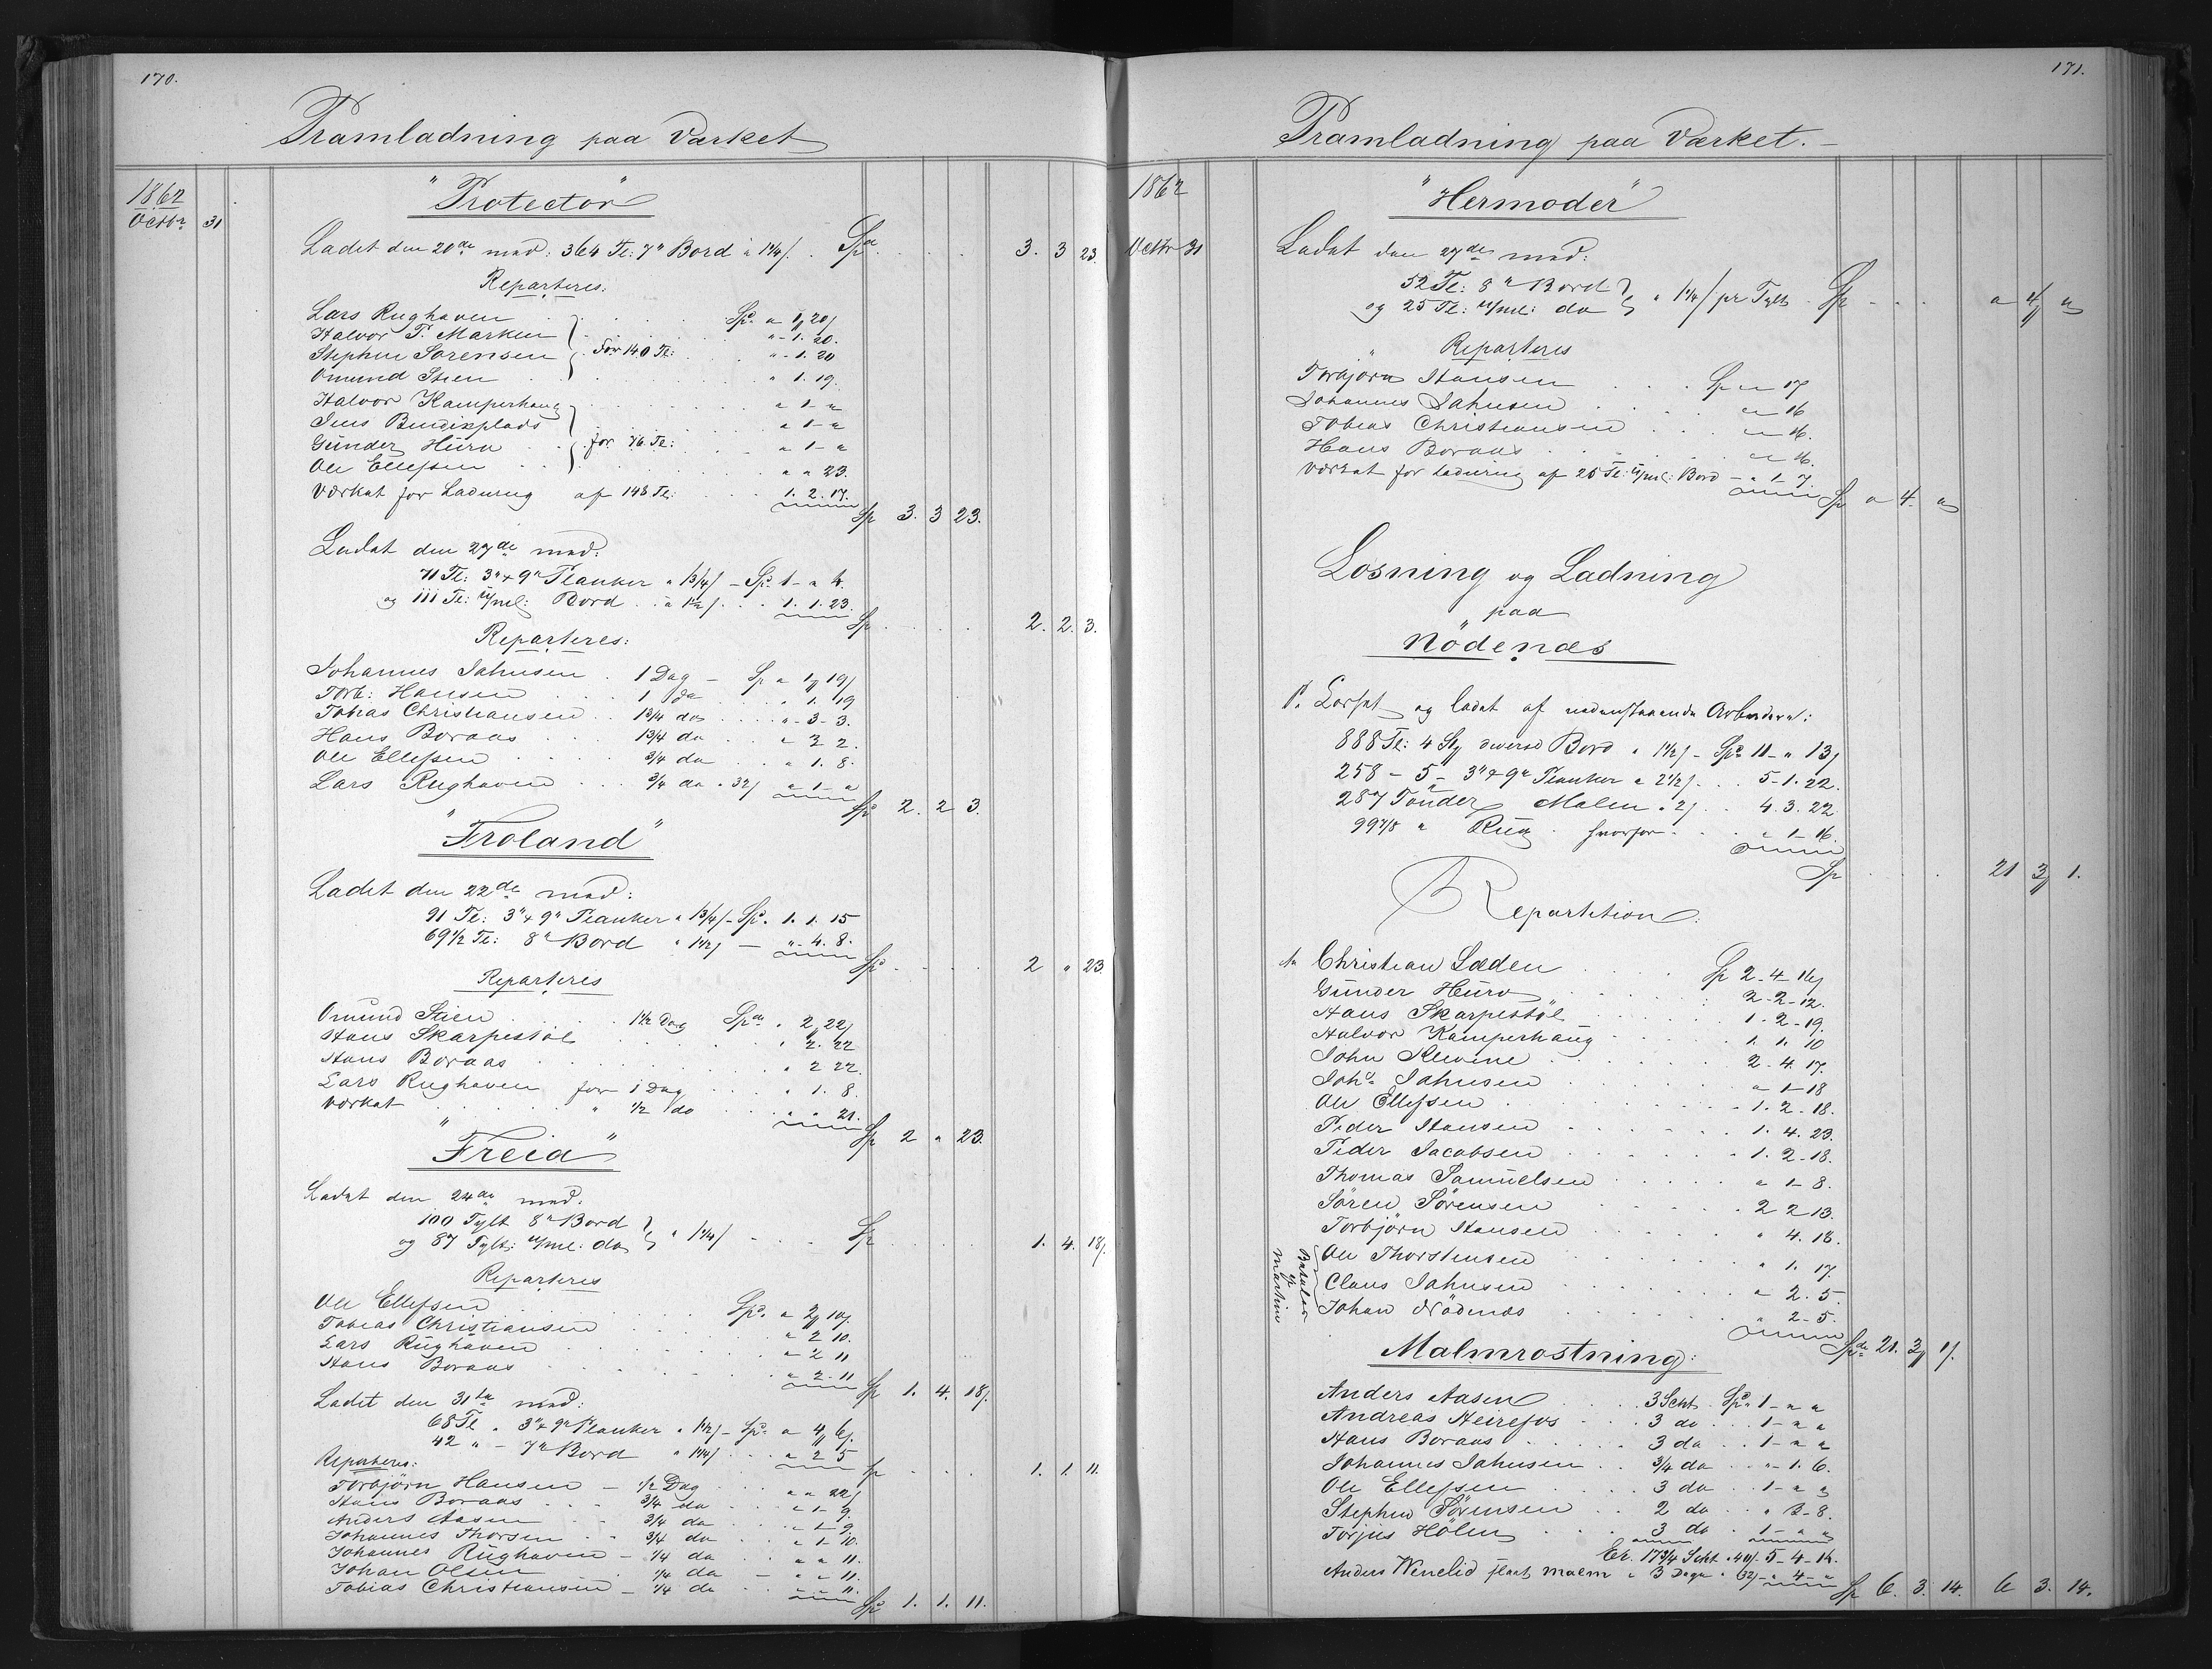 170.
Pramladning paa Værket
1862
Octbr 31
"Protector"
Ladet den 20de med: 364 Tl: 7" Bord a 1 1/4 /. Spd 3. 3 23.
Reparteres:
Lars Rughaven Spd. " 1 20/
Halvor P. Marken " - 1. 20.
Stephen Sorensen for 140 Tl: " - 1. 20
Omund Stien " 1. 19.
Halvor Kamperhaug " 1 - "
Jens Bendixplads " 1 - "
Gunder Huro for 76 Tl: " 1 - "
Ole Ellefsen " " 23.
Værket for Ladning af 148 Tl: 1. 2. 17.
Sp 3. 3 23.
Ladet den 27de med:
71 Tl: 3" x 9" Planker a 1 3/4 / - Spd. 1 - " 4.
og 111 Tl: u/mel: Bord a 1 1/2 /. 1. 1. 23.
Sp 2. 2. 3.
Reparteres:
Johannes Jahnsen 1 Dag - Sp " 1 19/
Torb: Hansen 1 do " 1. 19
Tobias Christiansen 1 3/4 do " - 3 - 3.
Hans Boraas 1 3/4 do " 3 2.
Ole Ellefsen 3/4 do " 1. 8.
Lars Rughaven 3/4 do a 32/ " 1 - "
Spd 2. 2 3.
"Froland"
Ladet den 22de med:
91 Tl: 3" x 9" Planker a 1 3/4 / - Spd. 1. 1. 15
69 1/2 Tl: 8" Bord a 1 1/2 / - " - 4. 8.
Spd 2 " 23.
Reparteres
Omund Stien 1 1/2 Dag Spd " 2 22/
Hans Skarpestöl " 2. 22
Hans Boraas " 2 22.
Lars Rughaven for 1 Dag " 1. 8.
Værket " 1/2 do " " 21.
Sp 2 " 23.
"Freia"
Ladet den 24de med.
100 Tylt 8" Bord
og 87 Tylt: u/mel: do a 1 1/4 / Sp 1. 4. 18/.
Reparteres
Ole Ellefsen Spd. " 2 10/.
Tobias Christiansen " 2 10.
Lars Rughaven " 2 11
Hans Boraas " 2. 11
Sp 1. 4. 18/.
Ladet den 31te med:
68 Tl " 3" x 9" Planker a 1 3/4 / - Spd. " 4 6/.
42 " - 7" Bord a 1 1/4 / " 2 5
Sp 1. 1. 11.
Reparteres:
Torbjörn Hansen - 1/2 Dag " " 22/
Hans Boraas 3/4 do " 1 - 9.
Anders Aasen 3/4 do " 1 - 9.
Johannes Thorsen 3/4 do " 1 - 10.
Johannes Rughaven - 1/4 do " " 11.
Johan Olsen 1/4 do " " 11.
Tobias Christiansen - 1/4 do " " 11.
Spd 1. 1. 11.
171.
Pramladning paa Værket. -
1862
Octbr 31
"Hermoder"
Ladet den 27de med:
52 Tl: 8" Bord
og 25 Tl: u/mel: do a 1 1/4 / pr Tylt Sp " 4 "
Reparteres
Torbjorn Hansen Sp " 17
Johannes Jahnsen " 16
Tobias Christiansen " 16.
Hans Boraas " 16.
Værket for Ladning af 25 Tl: u/mel: Bord - " 1 - 7.
Sp " 4. "
Losning og Ladning
paa
Nödenæs
Losset og ladet af nedenstaaende Arbeidere:
888 Tl: 4 St diverse Bord a 1 1/2 / - Spd 11 - " 13/
258 - 5 - 3" x 9" Planker a 2 1/2 /. 5 - 1. 22.
287 Tönder Malm a 2/. 4. 3. 22
99 7/8 " Rug hvorfor " 1 - 16.
Sp 21 3 1.
Repartition:
Christian Læden Sp 2 - 4 - 14/
Gunder Huro 2 - 2 - 12.
Hans Skarpestöl 1 - 2 - 19.
Halvor Kamperhaug 1. 1. 10
John Klevene 2. 4. 17.
Johs Jahnsen " 1 - 18
Ole Ellefsen 1. 2 - 18.
Peder Hansen 1. 4. 23.
Peder Jacobsen 1. 2 - 18.
Thomas Samuelsen " 1 - 8.
Sören Sörensen 2 2 13.
Torbjörn Hansen " 4. 18.
Ole Thorstensen " 1. 17.
Claus Jahnsen " 2. 5.
Johan Nödenæs " 2 - 5.
Spd 21. 3 1/.
Malmrostning:
Anders Aasen 3 Scht. Spd 1 - " "
Andreas Heirefos 3 do 1 - " "
Hans Boraas 3 do 1 - " "
Johannes Jahnsen 3/4 do " - 1. 6.
Ole Ellefsen 3 do 1 - " "
Stephen Sörensen 2 do " 3 - 8.
Torjus Hölen 3 do 1 - " "
Er. 17 3/4 Scht a 40/. 5 - 4 - 14.
Anders Wenelid malm a 3 Dage a 32/ - " 4 - "
Sp 6. 3. 14. 6 3. 14.